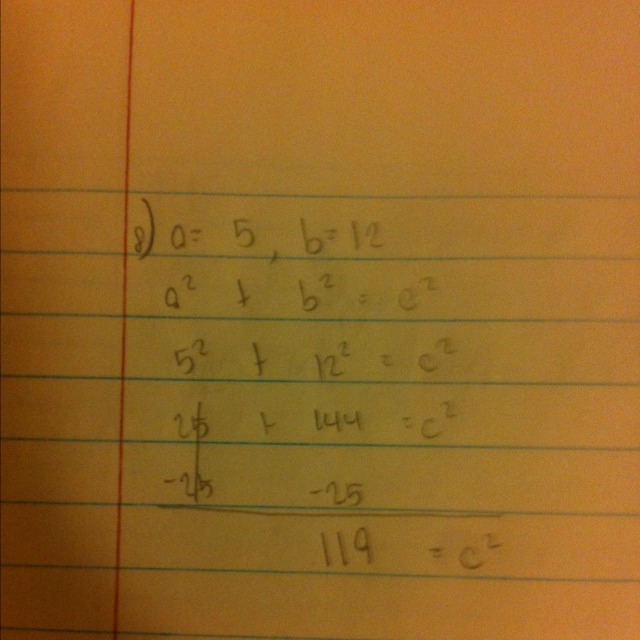 9) a=5, b=12
a² + b² = c²
5² + 12² = c²
25 + 144 = c²
-25 -25
119 = c²